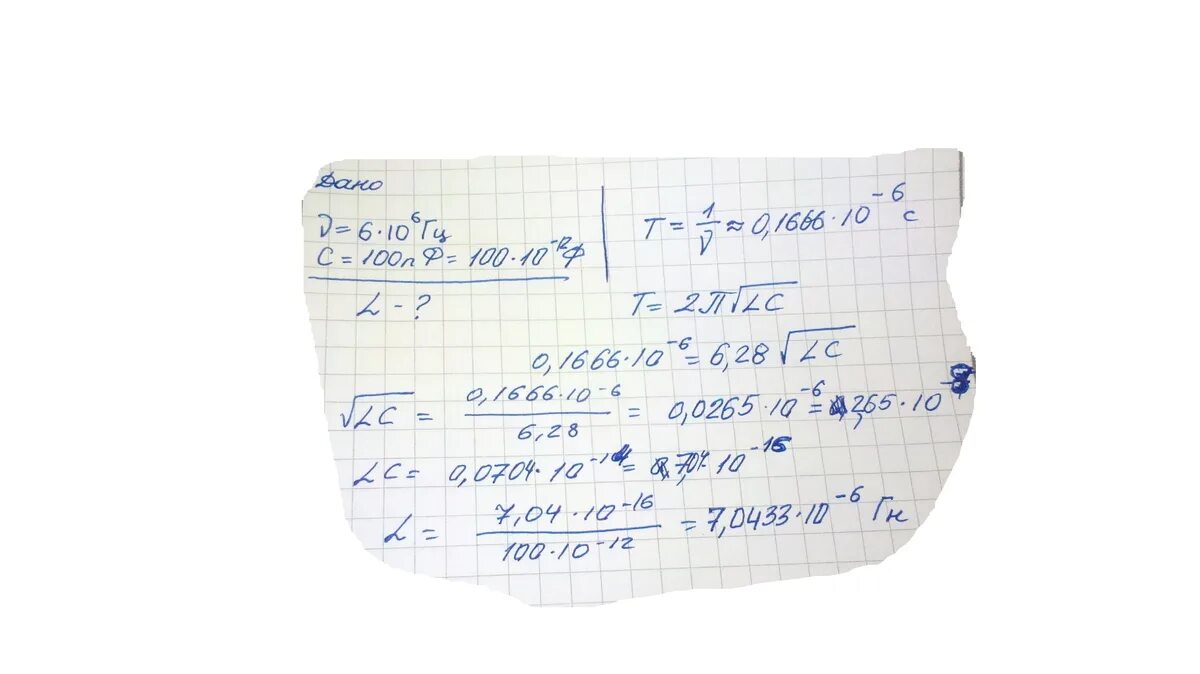 Дано
ν = 6·10⁶ Гц
C = 100 пФ = 100·10⁻¹² Ф
L - ?
T = 1/ν ≈ 0,1666·10⁻⁶ с
T = 2π√LC
0,1666·10⁻⁶ = 6,28 √LC
√LC = 0,1666·10⁻⁶ / 6,28 = 0,0265·10⁻⁶ = ,265·10
LC = 0,0704·10⁻¹⁴ = 7,04·10⁻¹⁶
L = 7,04·10⁻¹⁶ / 100·10⁻¹² = 7,0433·10⁻⁶ Гн